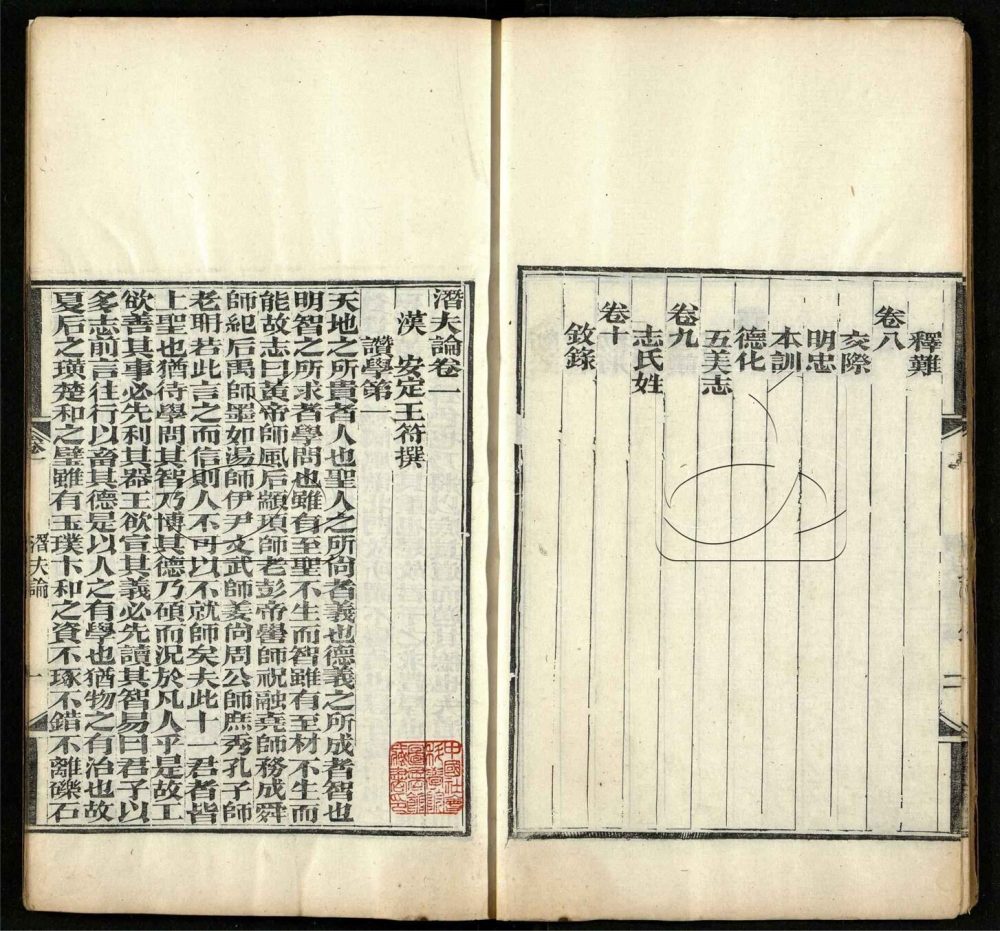 釋難
卷八
交際
明忠
本訓
德化
五美志
卷九
志氏姓
卷十
敘錄
二
潛夫論卷一
漢 安定王符撰
讚學第一
天地之所貴者人也聖人之所尙者義也德義之所成者智也
明智之所求者學問也雖有至聖不生而智雖有至材不生而
能故志曰黃帝師風后顓頊師老彭帝嚳師祝融堯師務成舜
師紀后禹師墨如湯師伊尹文武師姜尙周公師庶秀孔子師
老聃若此言之而信則人不可以不就師矣夫此十一君者皆
上聖也猶待學問其智乃博其德乃碩而況於凡人乎是故工
欲善其事必先利其器王欲宣其義必先讀其智易曰君子以
多志前言往行以畜其德是以人之有學也猶物之有治也故
夏后之璜楚和之璧雖有玉璞卞和之資不琢不錯不離礫石
卷一 潛夫論 一
中國社會
科學院
圖書館
藏書印